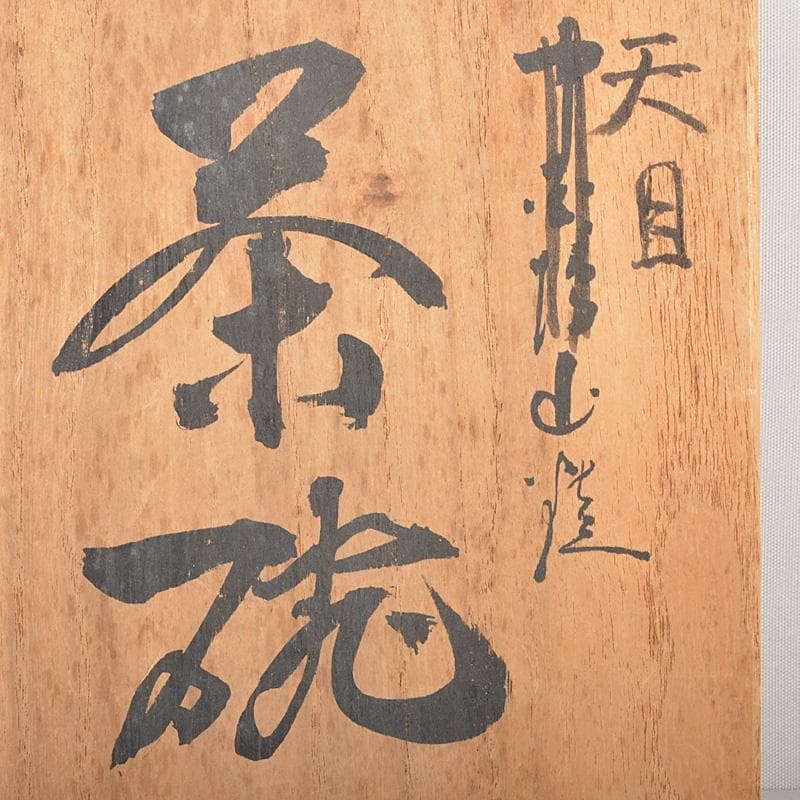 天目
山造
茶碗